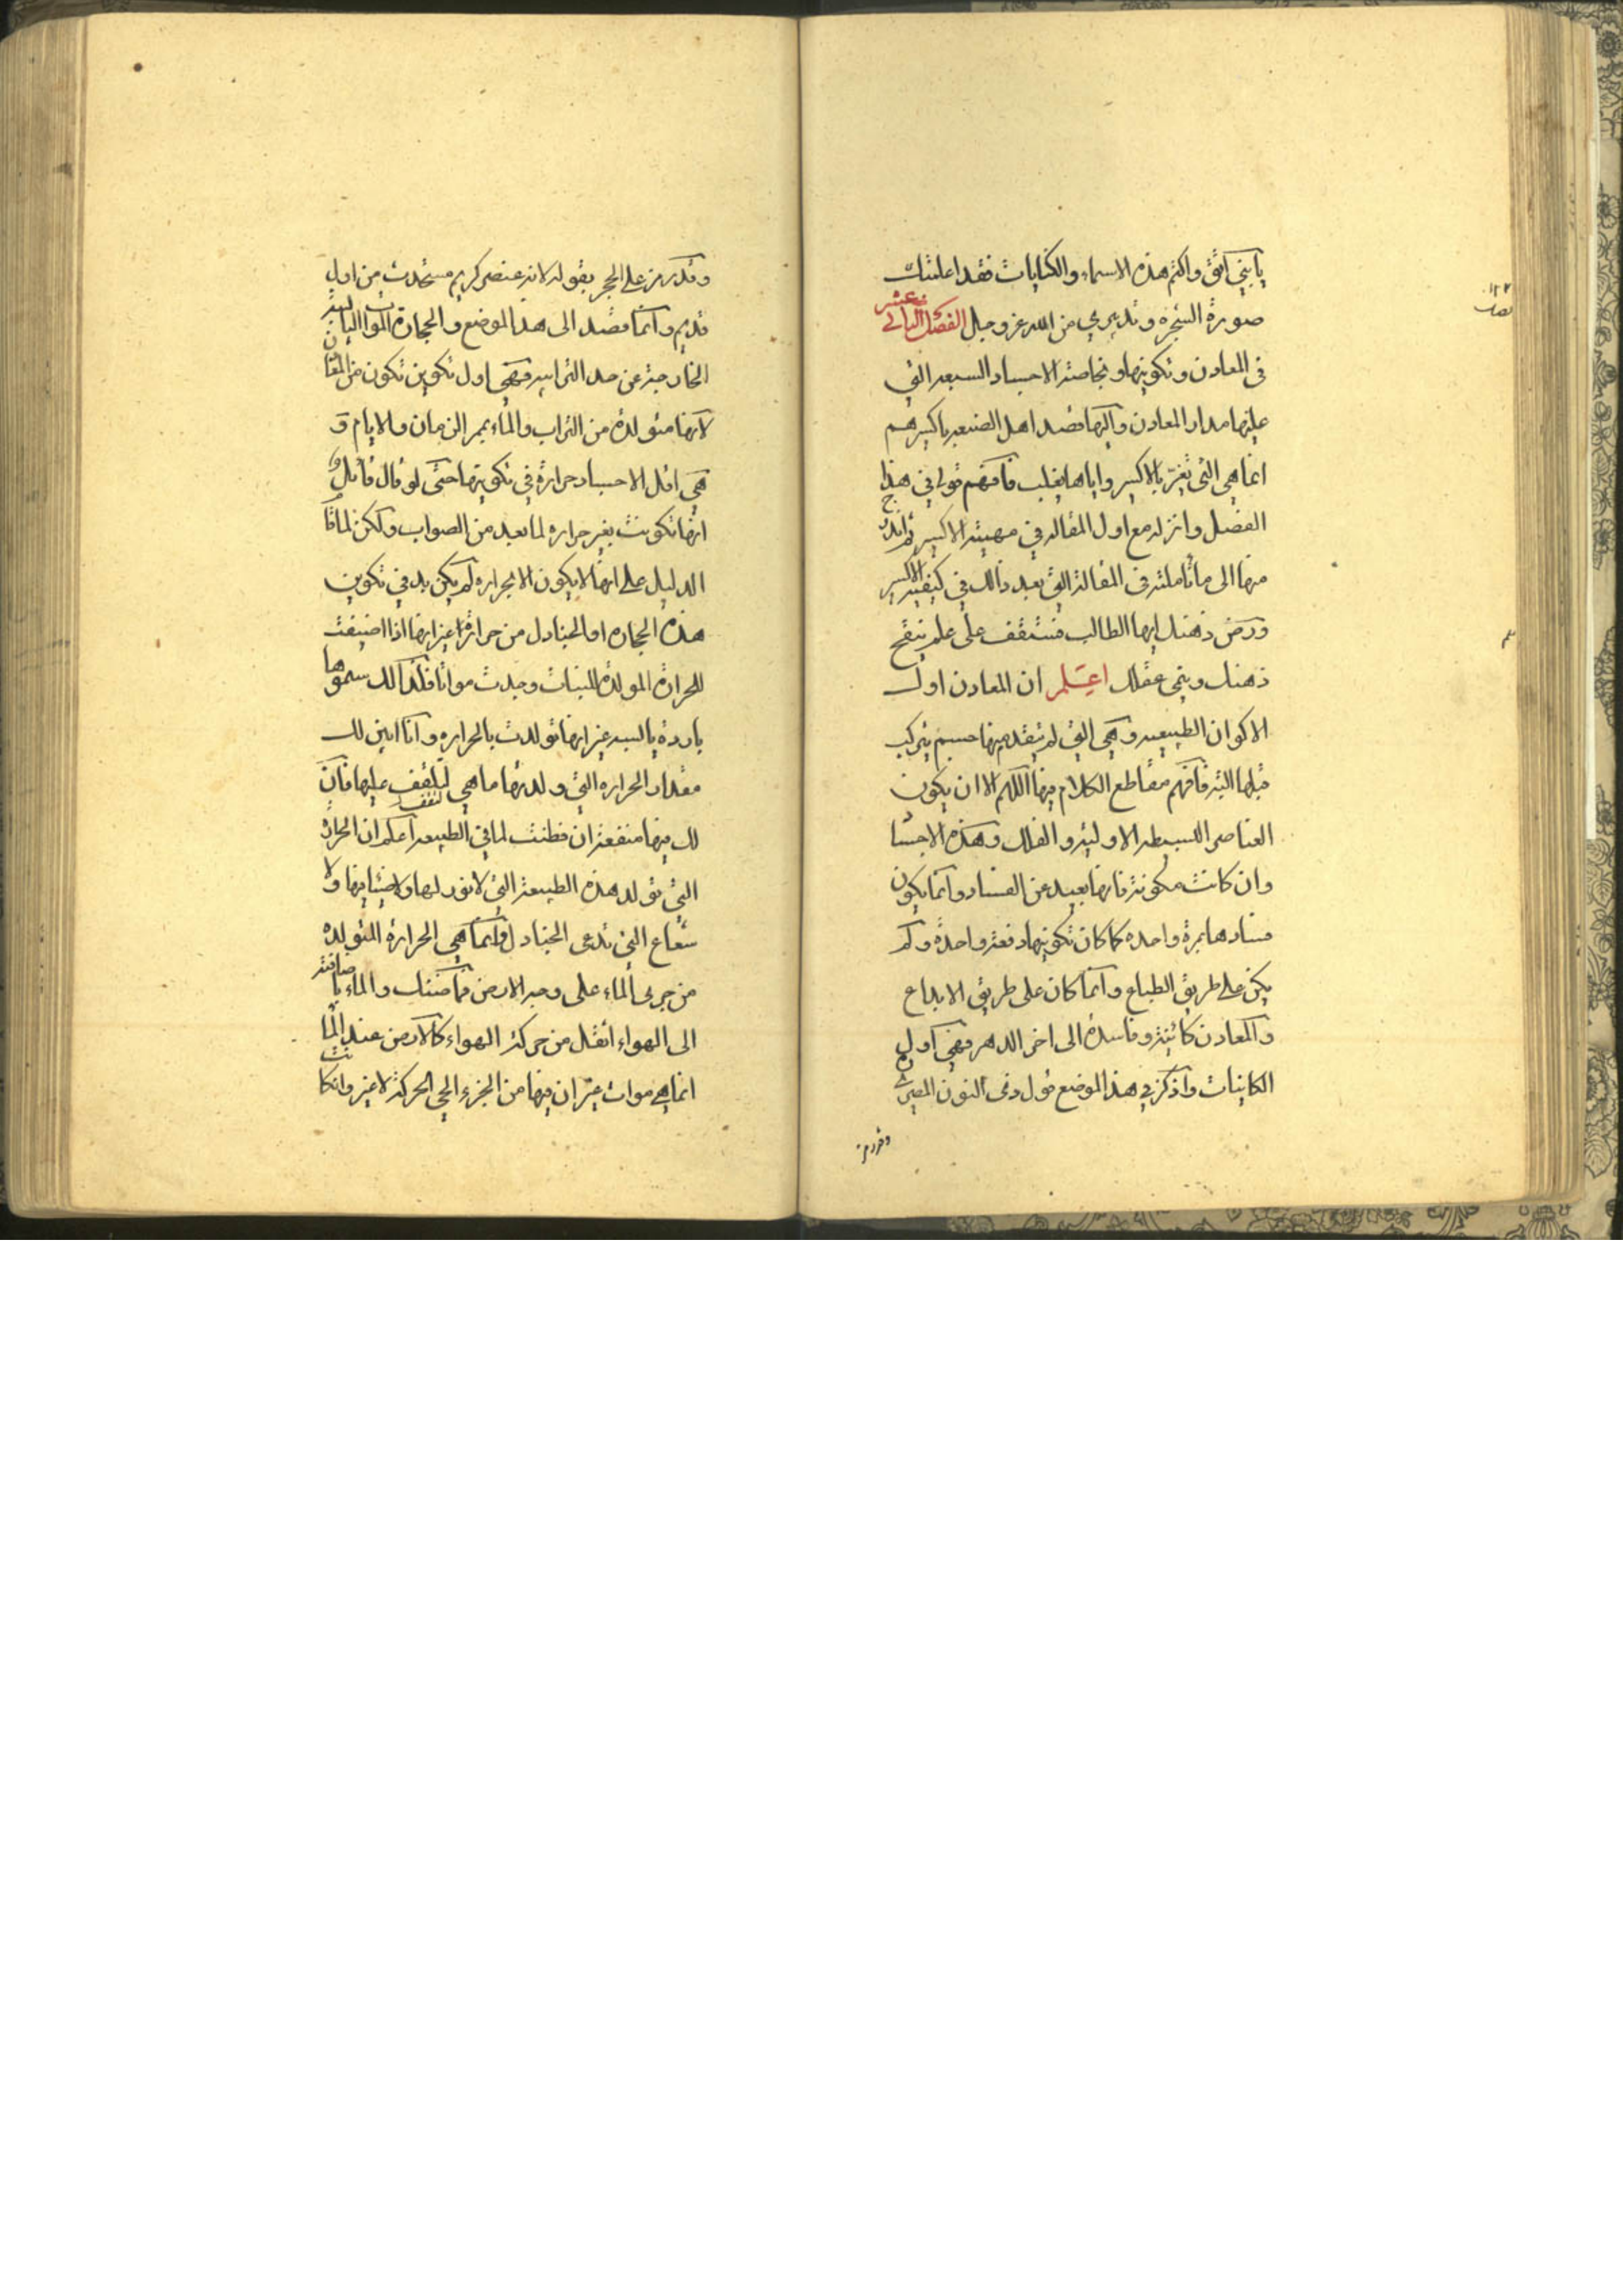 يا بني اتق واكتم هذه الاسماء والكنايات فقد اعلمتك
صورة الشجرة وتدبيري من الله عز وجل الفصل الثالث عشر
في المعادن وتكوينها وبخاصة الاجساد السبعة التي
عليها مدار المعادن واليها قصد اهل الصنعة باكسيرهم
انما هي التي تغير بالاكسير واياها يقلب فافهم قولي في هذا
الفصل وانزله مع اول المقالة في مهيئة الاكسير ثم
منها الى ما تأملته في المقالة التي بعد ذالك في كيفية الاكسير
ورض ذهنك ايها الطالب فستقف على علم ينقح
ذهنك وينمي عقلك اعلم ان المعادن اول
الاكوان الطبيعية وهي التي لم يتقدمها جسم يتركب
قبلها البتة فافهم مقاطع الكلام فيها اللهم الا ان يكون
العناصر البسيطة الاولية والفلك وهذه الاجسا
وان كانت مكونة فانها بعيد عن الفساد وانما يكون
فسادها بمرة واحده كما كان تكوينها دفعة واحدة ولم
يكن على طريق الطباع وانما كان على طريق الابداع
والمعادن كائنة وفاسدة الى اخر الدهر فهي اول
الكاينات واذكر في هذا الموضع قول ذي النون المصري
وقد رمز
وقد رمز على الحجر بقوله لانه عنصر كريم مستحدث من اول
قديم وانما قصد الى هذا الموضع والحجارة الموات اليابسة
الخارجة عن حد الترابية فهي اول تكوين تكون من المعادن
لانها متولدة من التراب والماء بممر الزمان والايام و
هي اقل الاجساد حرارة في تكوينها حتى لو قال قائل
انها تكونت بغير حراره لما بعد من الصواب ولكن لما قا
الدليل على انها لا يكون الا بحراره لم يكن بد في تكوين
هذه الحجاره او الجنادل من حرارة غير انها اذا اضيفت
للحرارة المولدة للنبات وجدت مواتا فلذالك سموها
باردة يابسة غير انها تولدت بالحراره وانا ابين لك
مقدار الحراره التي ولدتها ما هي لتقف عليها فان
لك فيها منفعة ان فطنت لما في الطبيعة اعلم ان الحرارة
التي تولد هذه الطبيعة التي لا نور لها ولا ضياء فيها ولا
شعاع التي تدعى الجنادل وانما هي الحرارة المتولدة
من جري الماء على وجه الارض والماء باضافته
الى الهواء اثقل من حركة الهواء كالارض عند الما
انما هي موات غير ان فيها من الجزء الحي الحركة لا غير وان كانت